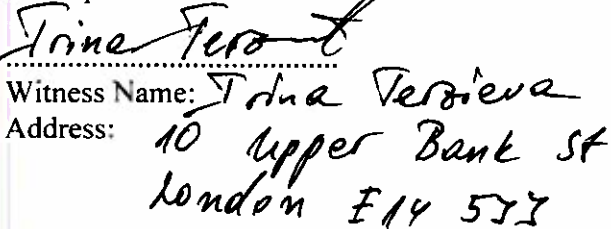 Irina
Witness Name: Irina Terzieva
Address: 10 Upper Bank St
London E14 5JJ